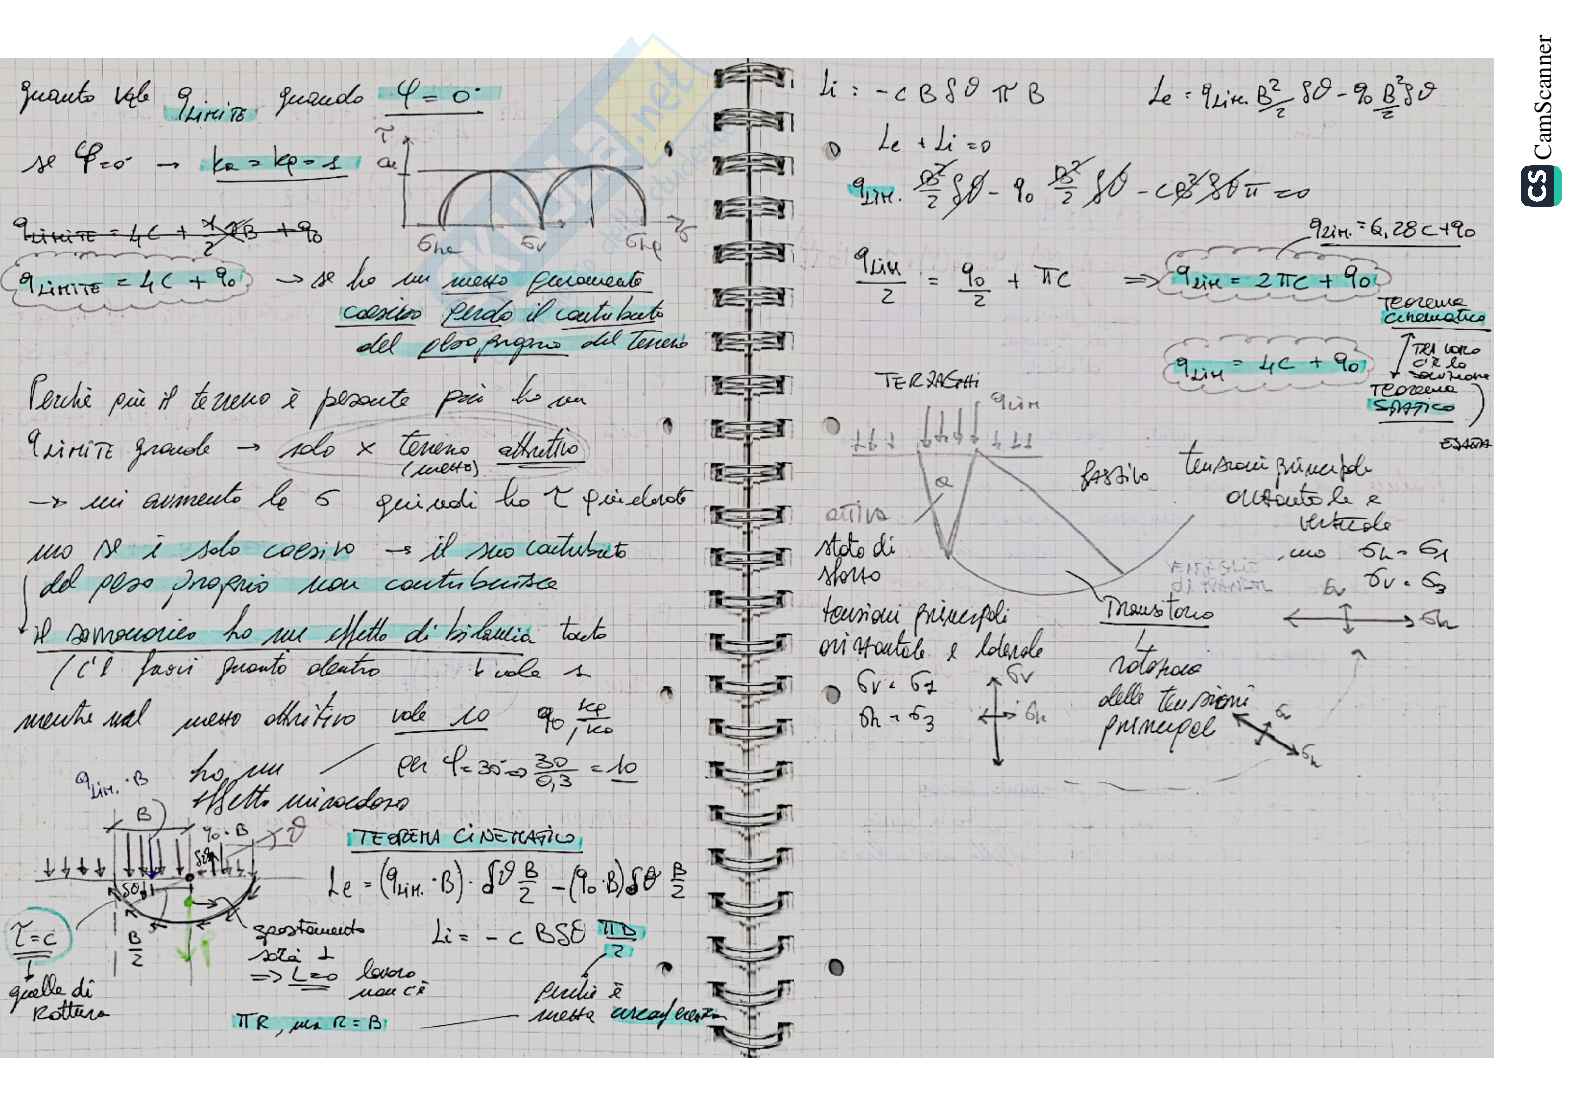 quanto vale qLIMITE quando φ = 0°
se φ=0° → ka = kp = 1
τ
cu
σha σv σhp σ
qLIMITE = 4C + 1/2 γB + q0
qLIMITE = 4C + q0 → se ho un mezzo puramente
coesivo perdo il contributo
del peso proprio del terreno
Perchè più il terreno è pesante più ho un
qLIMITE grande → solo x terreno attritivo
(mezzo)
→ mi aumento le σ quindi ho τ più elevate
ma se è solo coesivo → il suo contributo
del peso proprio non contribuisce
il sovraccarico ho un effetto di bilancia tanto
(c'è fuori quanto dentro
vale 1
mentre nel mezzo attritivo vale 10 q0, kp/ka
ho un per φ=30° → 30/0,3 = 10
effetto
qLIM. · B
B
q0 · B
ϑ
δϑ
TEOREMA CINEMATICO
Le = (qLIM. · B) · δϑ B/2 − (q0 · B) δϑ B/2
τ = c
B/2
spostamento
sarà ⊥
=> L=0 lavoro
non c'è
Li = − c Bδϑ πD/2
quella di
Rottura
perchè è
mezza circonferenza
πR, ma R = B
Li = − c B δϑ π B Le = qLim. B²/2 δϑ − q0 B²/2 δϑ
Le + Li = 0
qLIM. B²/2 δϑ − q0 B²/2 δϑ − cB²δϑπ = 0
qLIM. = 6,28c+q0
qLIM/2 = q0/2 + πC => qLIM = 2πC + q0
TEOREMA
CINEMATICO
qLIM = 4C + q0
TRA LORO
C'È LA
SOLUZIONE
TEOREMA
STATICO
ESATTA
TERZAGHI
qLIM
a
attiva
stato di
sforzo
tensioni principali
orizzontale e laterale
σv = σ1
σh = σ3
σv
σh
passivo
tensioni principali
orizzontale e
verticale
ma σh = σ1
σv = σ3
σv
σh
Transitorio
rotazione
delle tensioni
principali
σv
σh
CS CamScanner